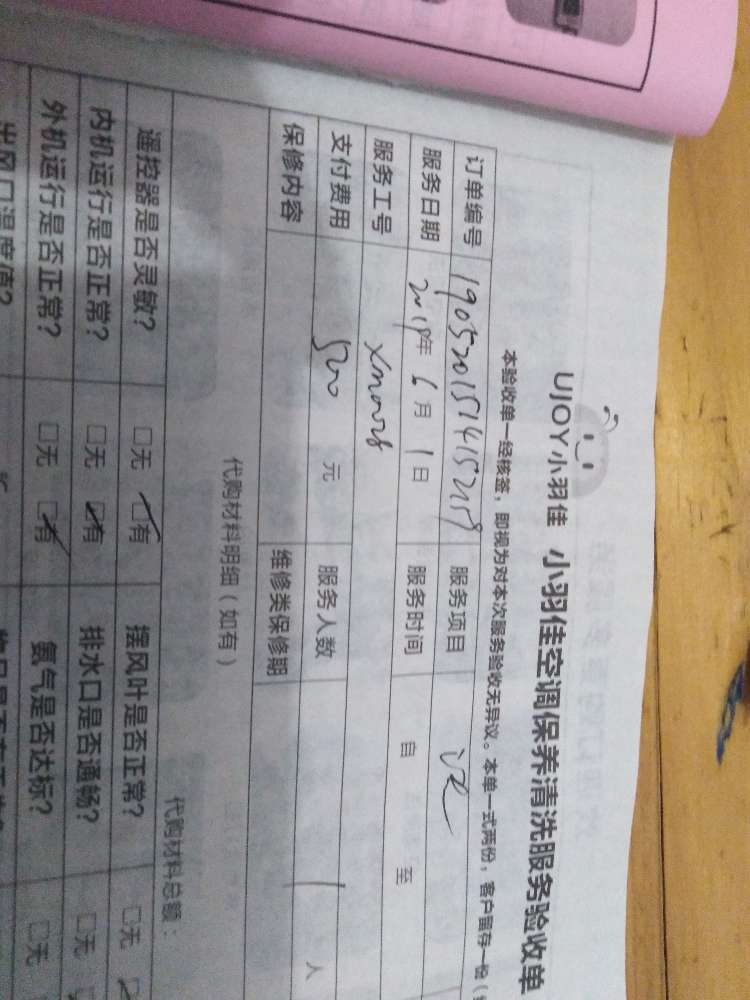 UJOY小羽佳 小羽佳空调保养清洗服务验收单
本验收单一经核签，即视为对本次服务验收无异议。本单一式两份，客户留存一份（
订单编号 服务项目
服务日期 2019年 6月 1日 服务时间 自 至
服务工号
支付费用 500 元 服务人数 1 人
保修内容 维修类保修期
代购材料明细（如有） 代购材料总额：
遥控器是否灵敏？ □无 □有 摆风叶是否正常？ □无
内机运行是否正常？ □无 □有 排水口是否通畅？ □无
外机运行是否正常？ □无 □有 氨气是否达标？ □无
出风口温度值？